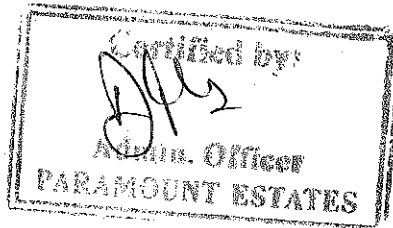 Certified by:
Admin. Officer
PARAMOUNT ESTATES